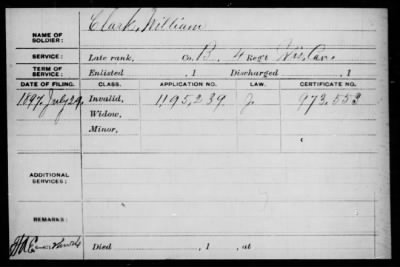 Clark, William
NAME OF
SOLDIER:
SERVICE: Late rank, Co. B, 4 Reg't Wis. Cav.
TERM OF
SERVICE: Enlisted , 1 Discharged , 1
DATE OF FILING. CLASS. APPLICATION NO. LAW. CERTIFICATE NO.
1897, July 29, Invalid, 1,195,239 J. 973,553
Widow,
Minor,
ADDITIONAL
SERVICES:
REMARKS:
Died , 1 , at